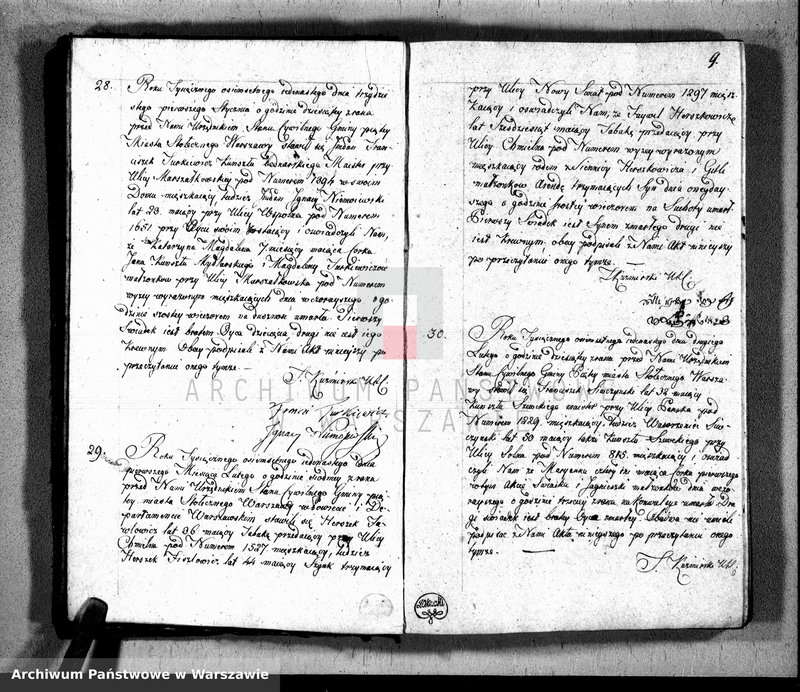 28.
Roku Tysiącznego osiemsetnego iedenastego dnia trzydzie
stego pierwszego Stycznia o godzinie dziesiątey zrana
przed Nami Urzędnikiem Stanu Cywilnego Gminy piątey
Miasta Stołecznego Warszawy stawił się Jmdan Fran
ciszek Turkiewicz kunsztu Bednarskiego Maister przy
Ulicy Marszałkowskiey pod Numerem 1394 w swoim
Domu mieszkaiący, tudzież Jmdan Ignacy Niemoiewski
lat 23. maiący przy Ulicy Wspolna pod Numerem
1651. przy Oycu swoim zostaiący i oswiadczyli Nam,
że Katarzyna Magdalena 7 miesięcy maiąca corka
Jana kunsztu Mydlarskiego i Magdaleny Turkiewiczow
małżonkow przy Ulicy Marszałkowska pod Numerem
wyżey wyrażonym mieszkaiących dnia wczorayszego o go
dzinie szostey wieczorem na umarła. Pierwszy
Swiadek iest bratem Oyca dziecięcia drugi nie iest iego
krewnym Obay podpisali z Nami Akt ninieyszy po
przeczytaniu onego tymże.
Kuzmirski
Turkiewicz
Ignacy
29.
Roku Tysiącznego osiemsetnego iedenastego dnia
pierwszego Miesiąca Lutego o godzinie siodmey zrana
przed Nami Urzędnikiem Stanu Cywilnego Gminy pią
tey miasta Stołecznego Warszawy w Powiecie i De
partamencie Warszawskim stawili się Herszek Fa
wlowicz lat 36 maiący Tabakę przedaiący przy Ulicy
Chmielna pod Numerem 1527 mieszkaiący, tudzież
Herszek Fiszlowicz lat 44 maiący Szynk trzymaiący
9.
przy Ulicy Nowy Swiat pod Numerem 1297 miesz
kaiący i oswiadczyli Nam, że Faywel Herszkowicz
lat Szesdziesiąt maiący Tabakę przedaiący przy
Ulicy Chmielna pod Numerem wyżey wyrażonym
mieszkaiący rodem z Siennicy Herszkowicza i Gitli
małżonkow Arendę trzymaiących Syn dnia onegday
szego o godzinie szostey wieczorem na Suchoty umarł
Pierwszy Swiadek iest Synem zmarłego drugi nie
iest krewnym, obay podpisali z Nami Akt ninieyszy
po przeczytaniu onego tymże.
Kuzmirski
30.
Roku Tysiącznego osiemsetnego iedenastego dnia drugiego
Lutego o godzinie dziesiątey zrana przed Nami Urzędnikiem
Stanu Cywilnego Gminy Piątey miasta Stołecznego Warsza
wy stawił się Franciszek lat 32 maiący
kunsztu Szewskiego maister przy Ulicy Panska pod
Numerem 1229. mieszkaiący, tudzież Wawrzeniec
lat 50 maiący także kunsztu Szewskiego przy
Ulicy Solna pod Numerem 815. mieszkaiący i oswiad
czyli Nam że Maryanna cztery lat maiąca corka pierwszego
małżonkow dnia wczo
rayszego o godzinie trzeciey zrana na konwulsye umarła. Dru
gi swiadek iest bratem Oyca zmarłey. Obadwa nie umieli
podpisać z Nami Aktu ninieyszego po przeczytaniu onego
tymże.
Kuzmirski
ARCHIWUM PAŃSTWOWE
W WARSZAWIE
Archiwum Państwowe w Warszawie